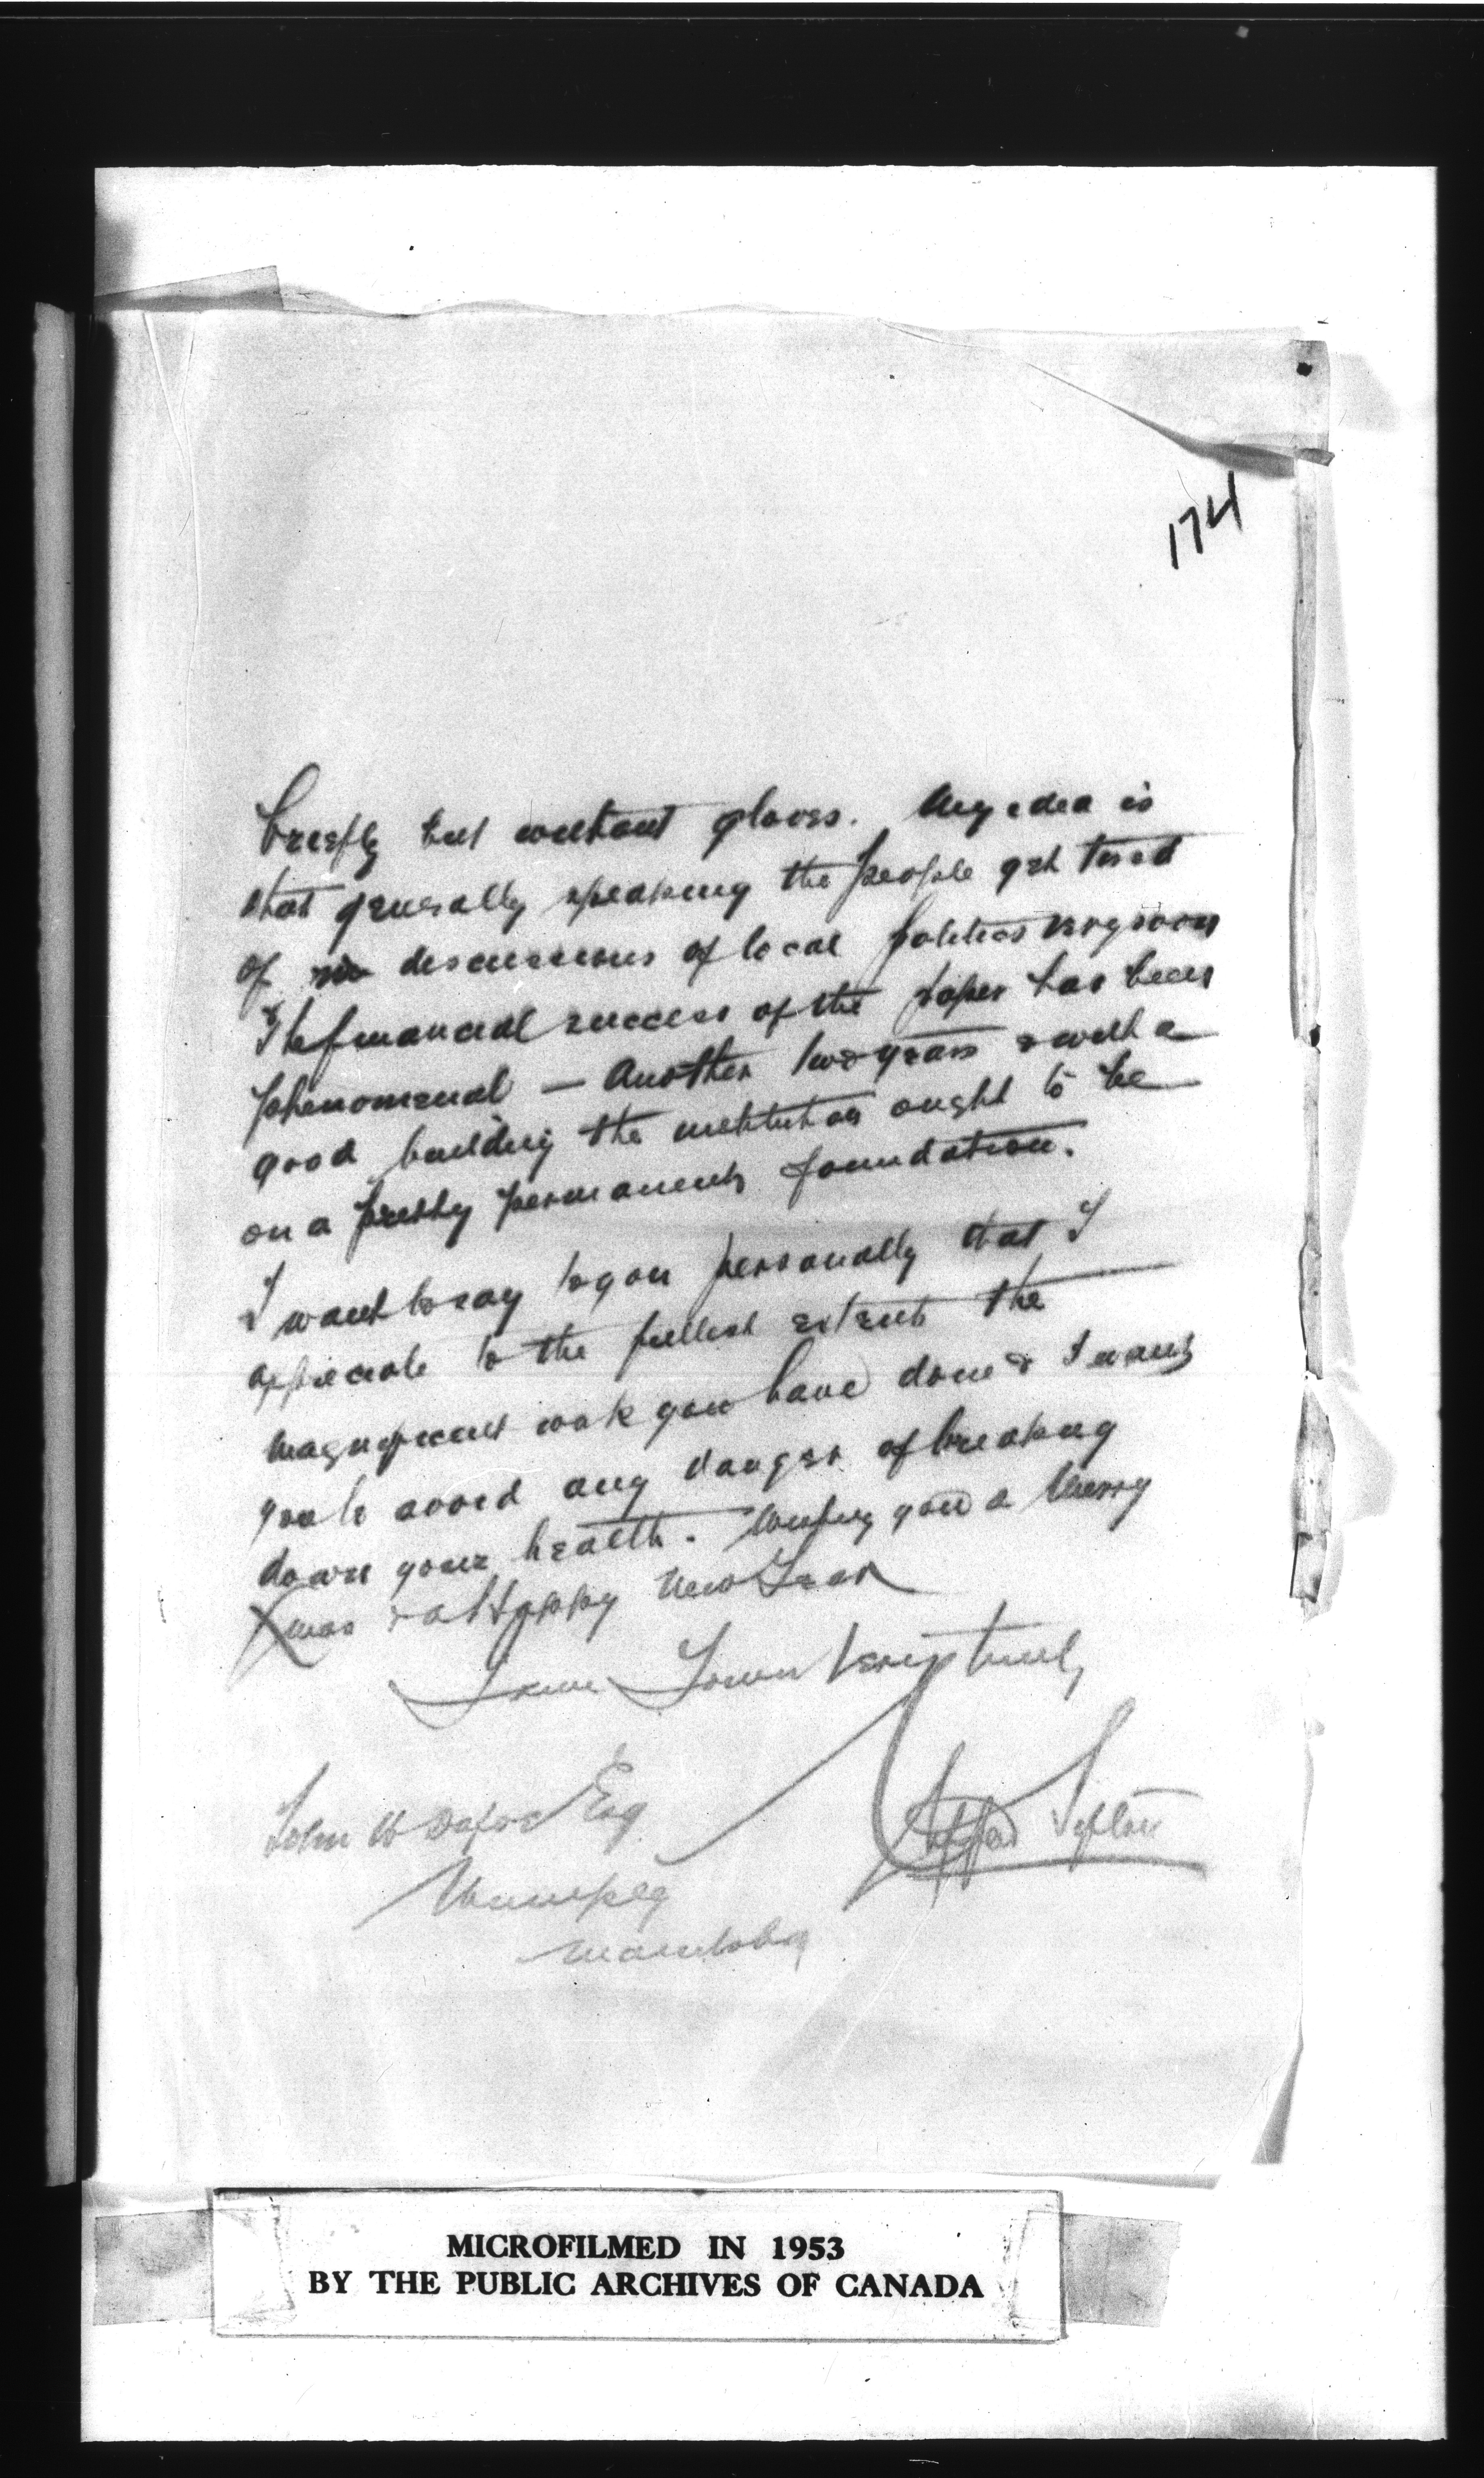 174
briefly but without gloves. My idea is
that generally speaking the people get tired
of discussions of local politics very soon
The financial success of the paper has been
phenomenal — Another two years & with a
good building the institution ought to be
on a pretty permanent foundation.
I want to say to you personally that I
appreciate to the fullest extent the
magnificent work you have done & I want
you to avoid any danger of breaking
down your health. Wishing you a Merry
Xmas & a Happy New Year
I am Yours very truly
Clifford Sifton
John W Dafoe Esq
Winnipeg
Manitoba
MICROFILMED IN 1953
BY THE PUBLIC ARCHIVES OF CANADA